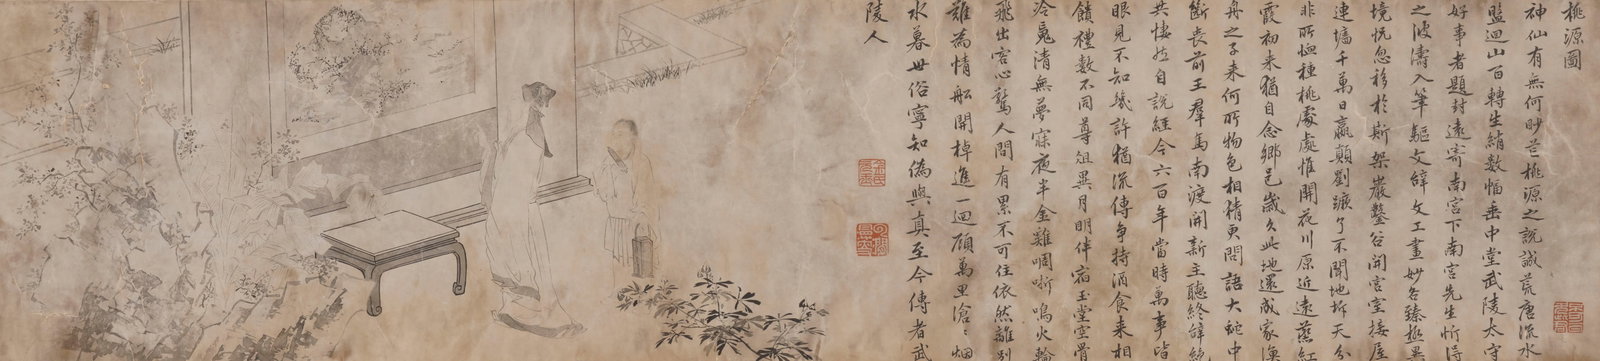 桃源圖
神仙有無何眇茫桃源之說誠荒唐流水
盤迴山百轉生綃數幅垂中堂武陵太守
好事者題封遠寄南宮下南宮先生忻得
之波濤入筆驅文辭文工畫妙各臻極異
境恍忽移於斯架巖鑿谷開宮室接屋
連墻千萬日嬴顛劉蹶了不聞地坼天分
非所恤種桃處處惟開花川原近遠蒸紅
霞初來猶自念鄉邑歲久此地還成家漁
舟之子來何所物色相猜更問語大蛇中
斷喪前王羣馬南渡開新主聽終辭絕
共悽然自說經今六百年當時萬事皆
眼見不知幾許猶流傳爭持酒食來相
饋禮數不同尊俎異月明伴宿玉堂空骨
冷魂清無夢寐夜半金雞啁哳鳴火輪
飛出客心驚人間有累不可住依然離別
難為情船開棹進一迴顧萬里滄〻烟
水暮世俗寧知偽與真至今傳者武
陵人